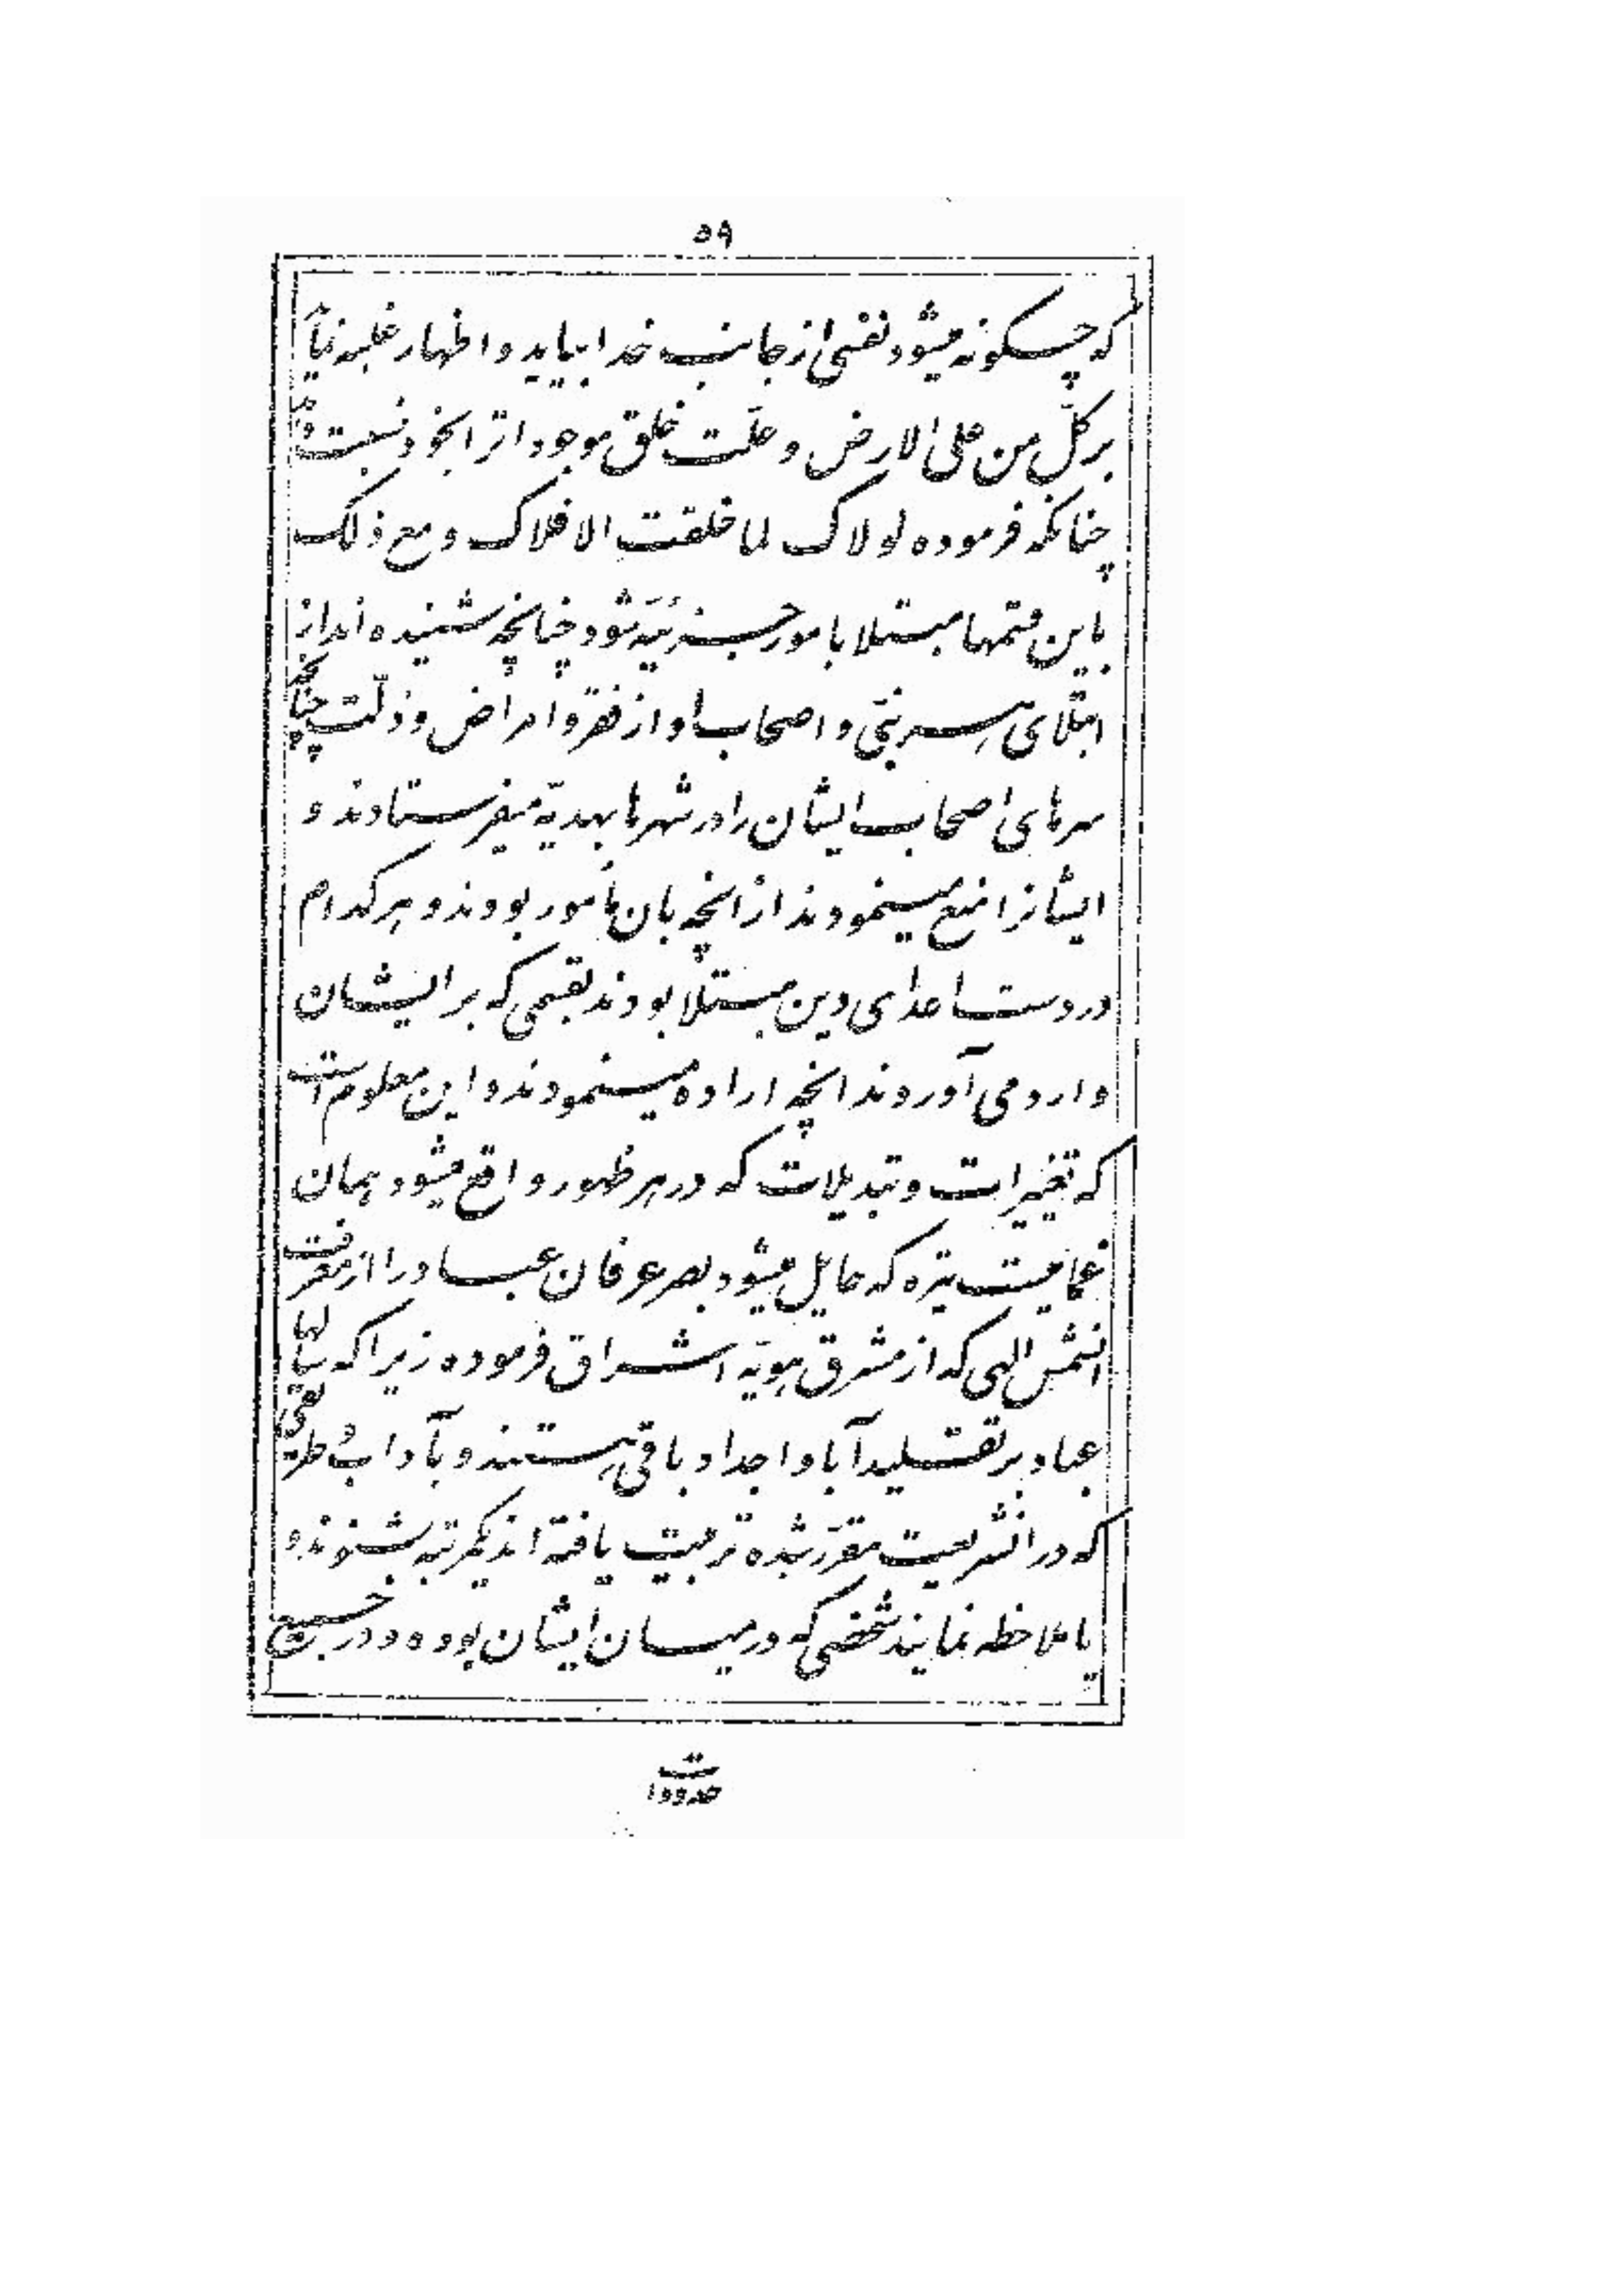 ۵۹
که چگونه میشود نفسی از جانب خدا بیاید و اظهار غلبه نماید
بر کلّ من علی الارض و علّت خلق موجودات را بخود نسبت دهد
چنانکه فرموده لولاک لما خلقت الافلاک و مع ذلک
باین قسمها مبتلا بامور جزئیّه شود چنانچه شنیده‌اند از
ابتلای هر نبیّ و اصحاب او از فقر و امراض و ذلّت چنانچه
سرهای اصحاب ایشان را در شهرها بهدیّه میفرستادند و
ایشانرا منع مینمودند از انچه بان مأمور بودند و هر کدام
در دست اعدای دین مبتلا بودند بقسمی که بر ایشان
وارد می آوردند انچه اراده مینمودند و این معلوم است
که تغییرات و تبدیلات که در هر ظهور واقع میشود همان
غمامیست تیره که حایل میشود بصر عرفان عباد را از معرفت
انشمس الهی که از مشرق هویّه اشراق فرموده زیرا که سالها
عباد بر تقلید آبا و اجداد باقی هستند و بآداب و طریقی
که در انشریعت مقرّر شده تربیت یافته اند یکمرتبه بشنوند و
یا ملاحظه نمایند شخصی که در میان ایشان بوده و در جمیع
حدودات